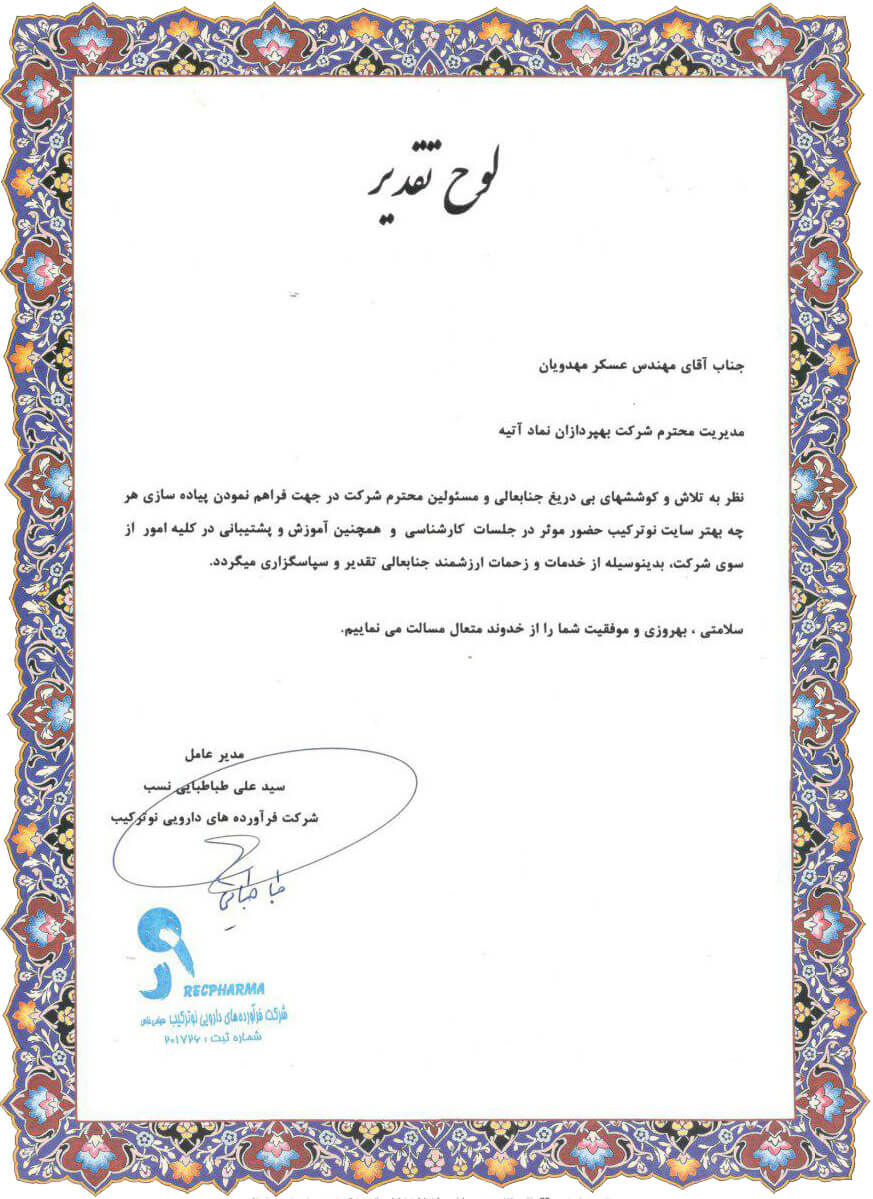 لوح تقدیر
جناب آقای مهندس عسکر مهدویان
مدیریت محترم شرکت بهپردازان نماد آتیه
نظر به تلاش و کوششهای بی دریغ جنابعالی و مسئولین محترم شرکت در جهت فراهم نمودن پیاده سازی هر
چه بهتر سایت نوترکیب حضور موثر در جلسات کارشناسی و همچنین آموزش و پشتیبانی در کلیه امور از
سوی شرکت، بدینوسیله از خدمات و زحمات ارزشمند جنابعالی تقدیر و سپاسگزاری میگردد.
سلامتی ، بهروزی و موفقیت شما را از خدوند متعال مسالت می نماییم.
مدیر عامل
سید علی طباطبایی نسب
شرکت فرآورده های دارویی نوترکیب
طباطبائی
RECPHARMA
شرکت فرآورده‌های دارویی نوترکیب سهامی خاص
شماره ثبت : ۲۰۱۷۲۶